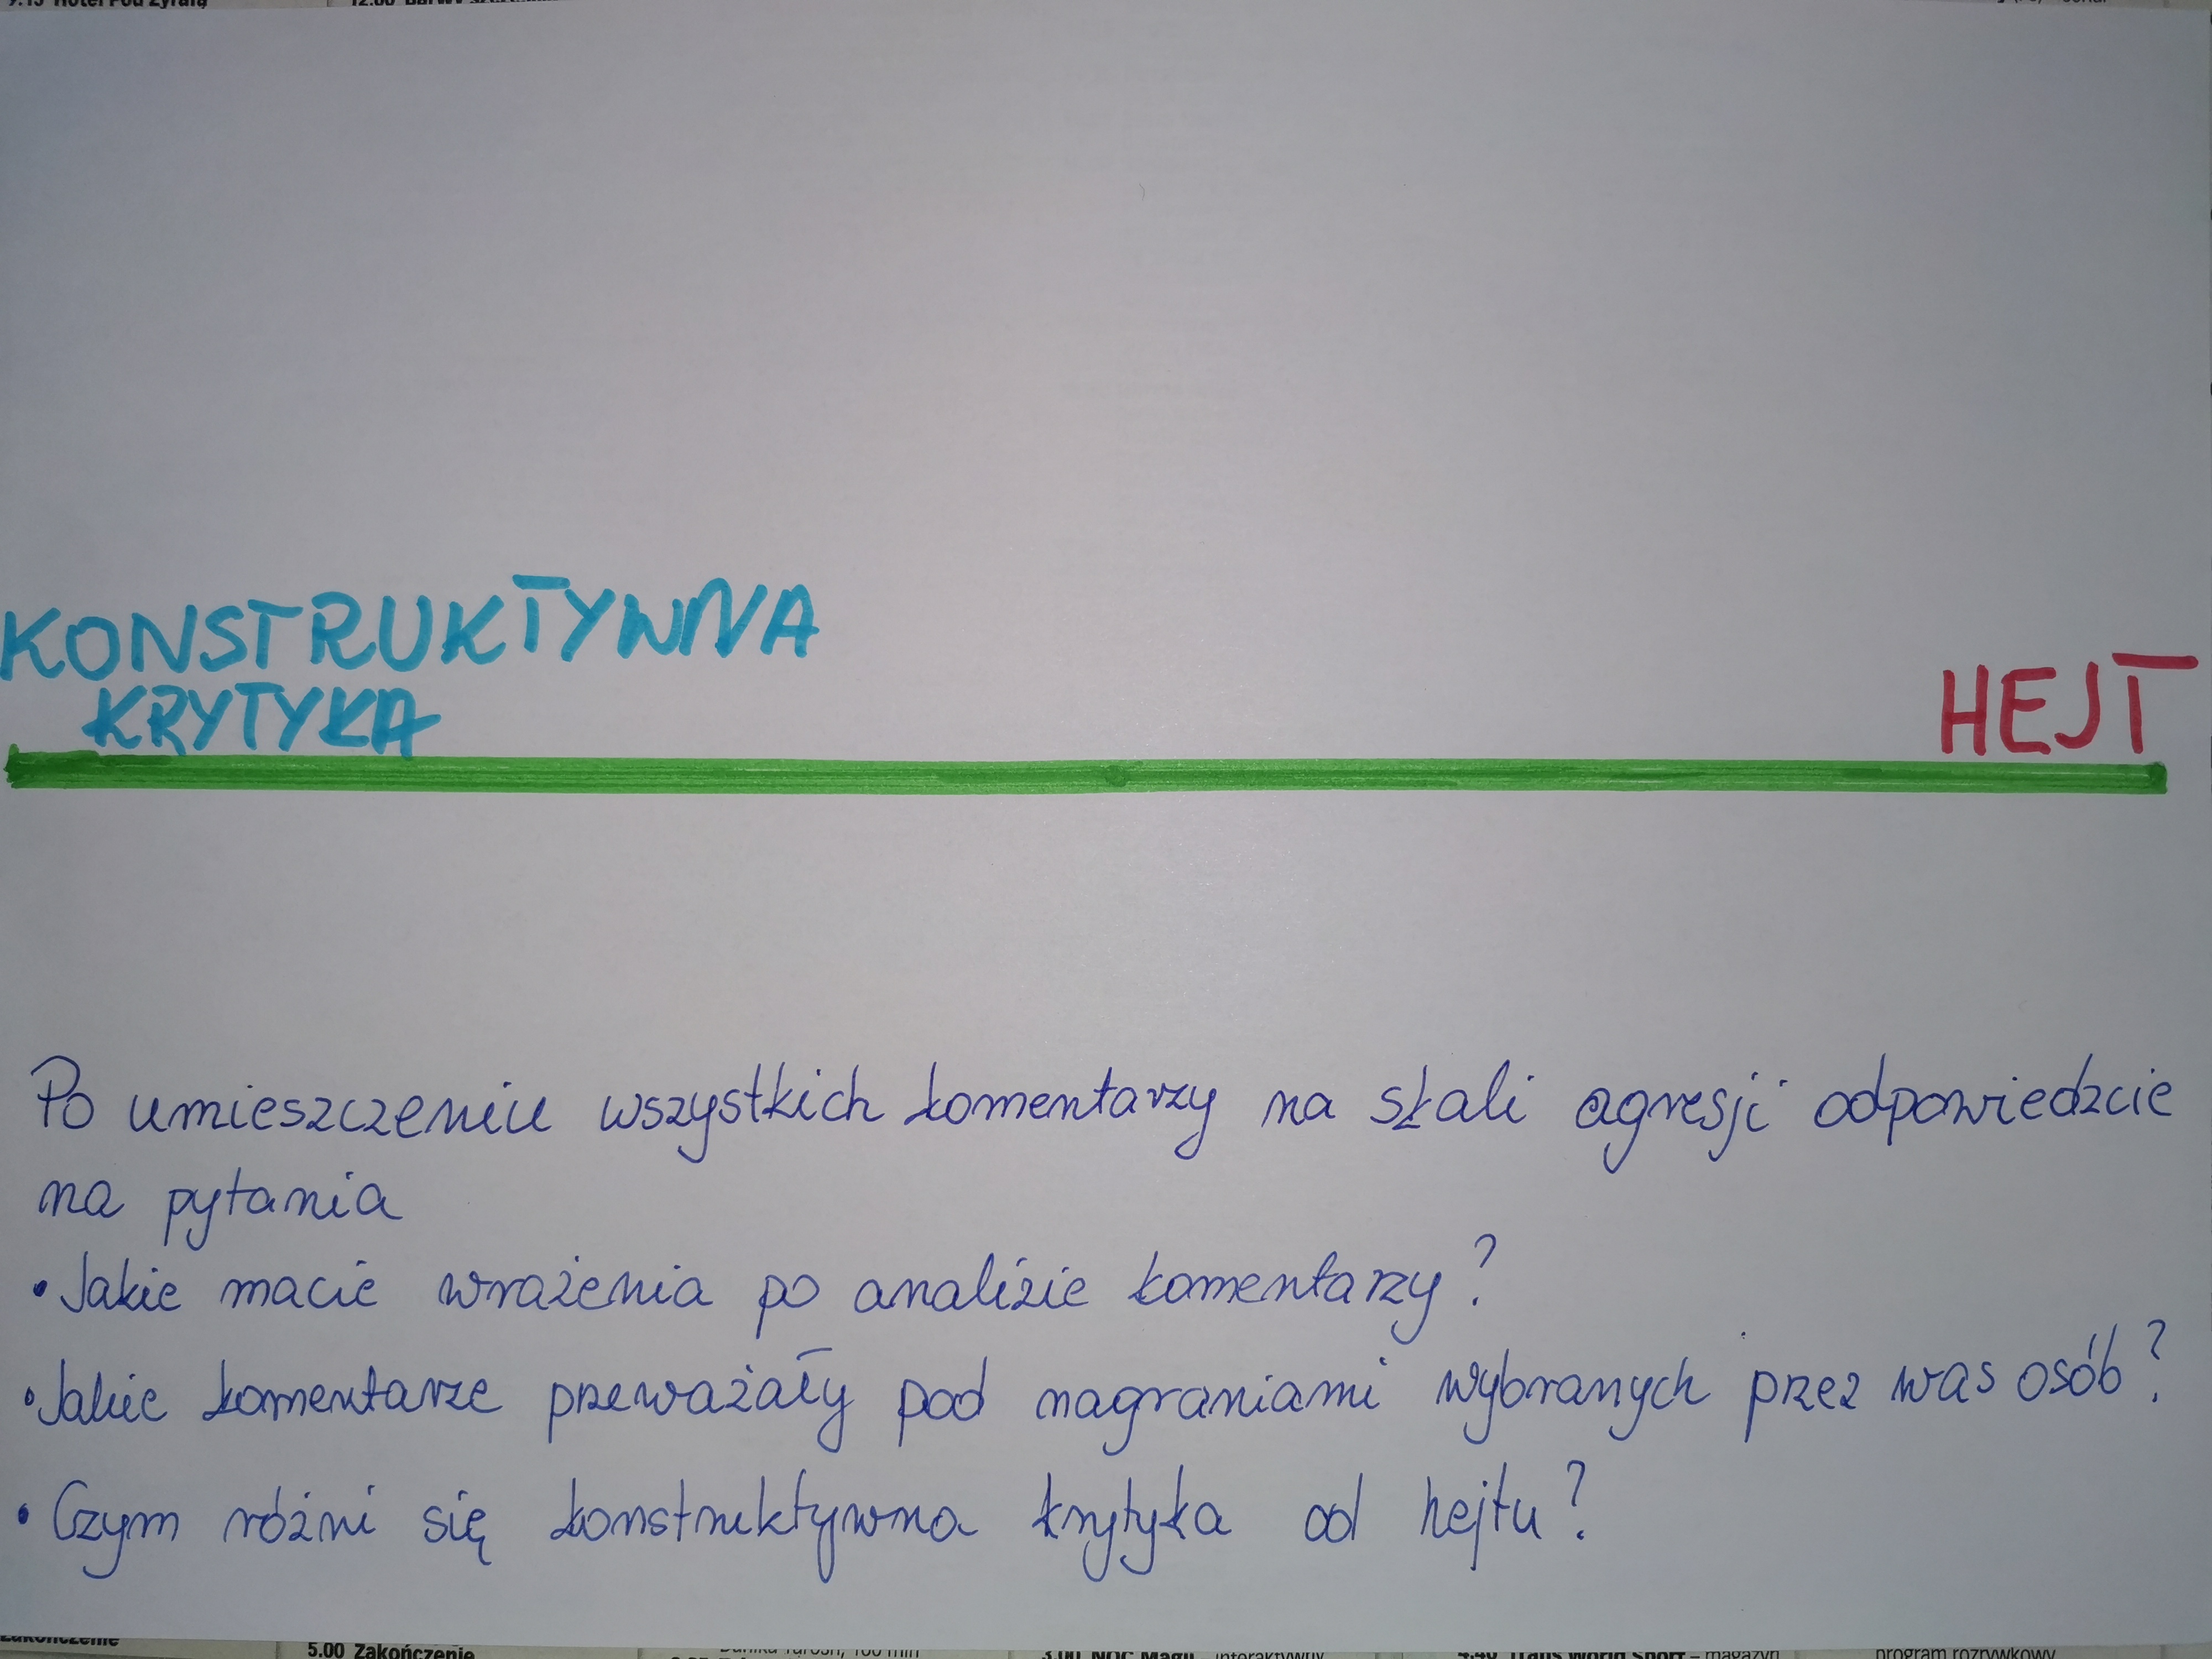 9.15 Hotel Pod Żyrafą
KONSTRUKTYWNA
KRYTYKA
HEJT
Po umieszczeniu wszystkich komentarzy na skali agresji odpowiedzcie
na pytania
• Jakie macie wrażenia po analizie komentarzy?
• Jakie komentarze przeważały pod nagraniami wybranych przez was osób?
• Czym różni się konstruktywna krytyka od hejtu?
Zakończenie
5.00 Zakończenie
3.00 NOC Magii interaktywny
4.40 Trans World Sport – magazyn
program rozrywkowy